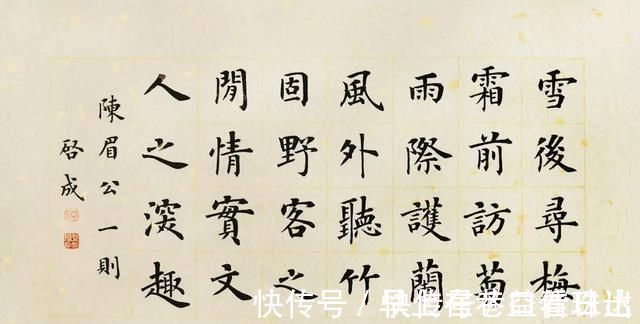 雪後尋梅
霜前訪菊
雨際護蘭
風外聽竹
固野客之
閒情實文
人之深趣
陳眉公一則
啓成
快传号 /